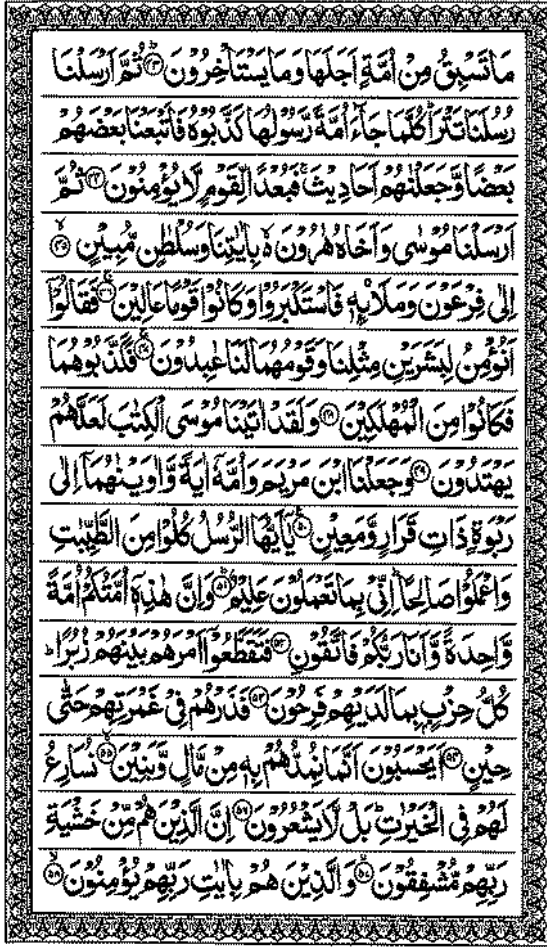 مَا تَسْبِقُ مِنْ اُمَّةٍ اَجَلَهَا وَمَا يَسْتَاْخِرُوْنَ ﴿۴۳﴾ ثُمَّ اَرْسَلْنَا
رُسُلَنَا تَتْرَا ؕ كُلَّمَا جَآءَ اُمَّةً رَّسُوْلُهَا كَذَّبُوْهُ فَاَتْبَعْنَا بَعْضَهُمْ
بَعْضًا وَّجَعَلْنٰهُمْ اَحَادِيْثَ ۚ فَبُعْدًا لِّقَوْمٍ لَّا يُؤْمِنُوْنَ ﴿۴۴﴾ ثُمَّ
اَرْسَلْنَا مُوْسٰى وَاَخَاهُ هٰرُوْنَ ۙ بِاٰيٰتِنَا وَسُلْطٰنٍ مُّبِيْنٍ ﴿۴۵﴾
اِلٰى فِرْعَوْنَ وَمَلَا۟ئِهٖ فَاسْتَكْبَرُوْا وَكَانُوْا قَوْمًا عَالِيْنَ ﴿۴۶﴾ فَقَالُوْۤا
اَنُؤْمِنُ لِبَشَرَيْنِ مِثْلِنَا وَقَوْمُهُمَا لَنَا عٰبِدُوْنَ ﴿۴۷﴾ فَكَذَّبُوْهُمَا
فَكَانُوْا مِنَ الْمُهْلَكِيْنَ ﴿۴۸﴾ وَلَقَدْ اٰتَيْنَا مُوْسَى الْكِتٰبَ لَعَلَّهُمْ
يَهْتَدُوْنَ ﴿۴۹﴾ وَجَعَلْنَا ابْنَ مَرْيَمَ وَاُمَّهٗۤ اٰيَةً وَّاٰوَيْنٰهُمَاۤ اِلٰى
رَبْوَةٍ ذَاتِ قَرَارٍ وَّمَعِيْنٍ ﴿۵۰﴾ يٰۤاَيُّهَا الرُّسُلُ كُلُوْا مِنَ الطَّيِّبٰتِ
وَاعْمَلُوْا صَالِحًا ؕ اِنِّىْ بِمَا تَعْمَلُوْنَ عَلِيْمٌ ﴿۵۱﴾ وَاِنَّ هٰذِهٖۤ اُمَّتُكُمْ اُمَّةً
وَّاحِدَةً وَّاَنَا رَبُّكُمْ فَاتَّقُوْنِ ﴿۵۲﴾ فَتَقَطَّعُوْۤا اَمْرَهُمْ بَيْنَهُمْ زُبُرًا ؕ
كُلُّ حِزْبٍۢ بِمَا لَدَيْهِمْ فَرِحُوْنَ ﴿۵۳﴾ فَذَرْهُمْ فِىْ غَمْرَتِهِمْ حَتّٰى
حِيْنٍ ﴿۵۴﴾ اَيَحْسَبُوْنَ اَنَّمَا نُمِدُّهُمْ بِهٖ مِنْ مَّالٍ وَّبَنِيْنَ ﴿۵۵﴾ نُسَارِعُ
لَهُمْ فِى الْخَيْرٰتِ ؕ بَلْ لَّا يَشْعُرُوْنَ ﴿۵۶﴾ اِنَّ الَّذِيْنَ هُمْ مِّنْ خَشْيَةِ
رَبِّهِمْ مُّشْفِقُوْنَ ﴿۵۷﴾ وَالَّذِيْنَ هُمْ بِاٰيٰتِ رَبِّهِمْ يُؤْمِنُوْنَ ﴿۵۸﴾